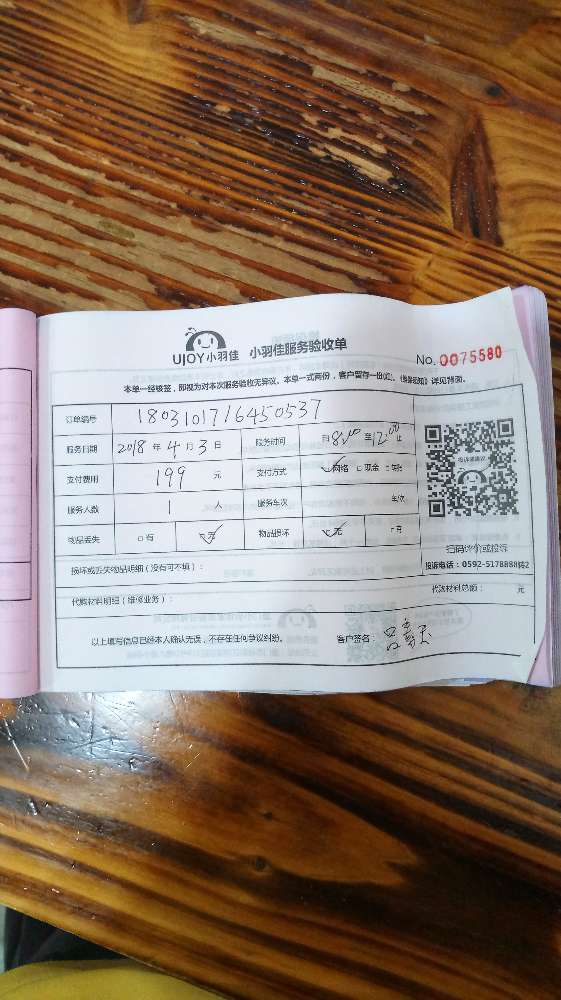 UJOY小羽佳 小羽佳服务验收单
No. 0075580
本单一经签订,即视为对本次服务验收无异议。本单一式两份,客户留存一份(红)。《服务须知》详见背面。
订单编号 1803101716450537
服务日期 2018 年 4 月 3 日 服务时间 自 8:00 至 12:00 止
支付费用 199 元 支付方式 ☑网络 □现金 □
服务人数 1 人 服务车次 车次
物品丢失 □有 ☑无 物品损坏 ☑无 □有
扫码评价或投诉
投诉电话:0592-5178888转2
损坏或丢失物品明细(没有可不填):
代购材料明细(维修业务): 代购材料总额: 元
以上填写信息已经本人确认无误,不存在任何争议纠纷。 客户签名: